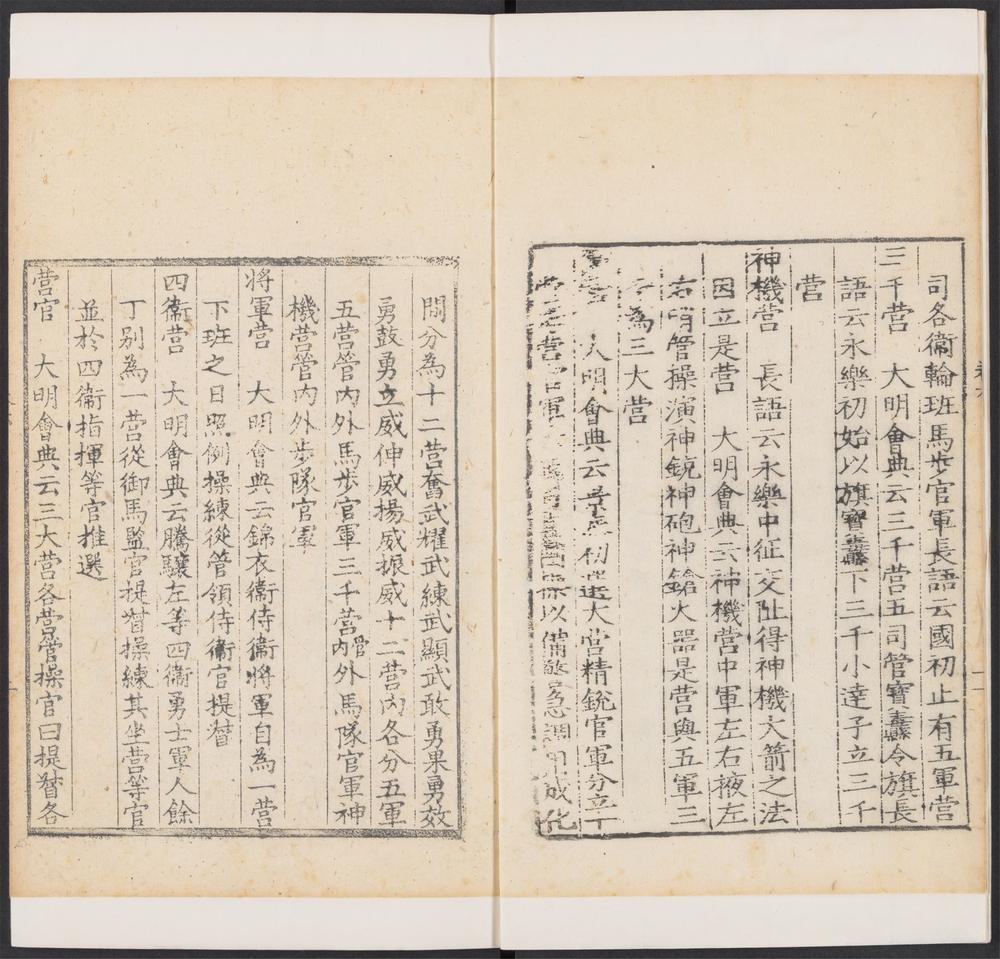 司各衞輪班馬步官軍長語云國初止有五軍營
三千營　大明會典云三千營五司管寶纛令旗長
語云永樂初始以旗寶纛下三千小達子立三千
營
神機營　長語云永樂中征交阯得神機火箭之法
因立是營　大明會典云神機營中軍左右掖左
右哨管操演神銃神砲神鎗火器是營與五軍三
千為三大營
大明會典云景泰初選大營精銳官軍分立十
營官軍以備警急調用成化
間分為十二營奮武耀武練武顯武敢勇果勇效
勇鼓勇立威伸威揚威振威十二營內各分五軍
五營管內外馬步官軍三千營管內外馬隊官軍神
機營管內外步隊官軍
將軍營　大明會典云錦衣衞侍衞將軍自為一營
下班之日照例操練從管領侍衞官提督
四衞營　大明會典云騰驤左等四衞勇士軍人餘
丁別為一營從御馬監官提督操練其坐營等官
並於四衞指揮等官推選
營官　大明會典云三大營各營管操官曰提督各